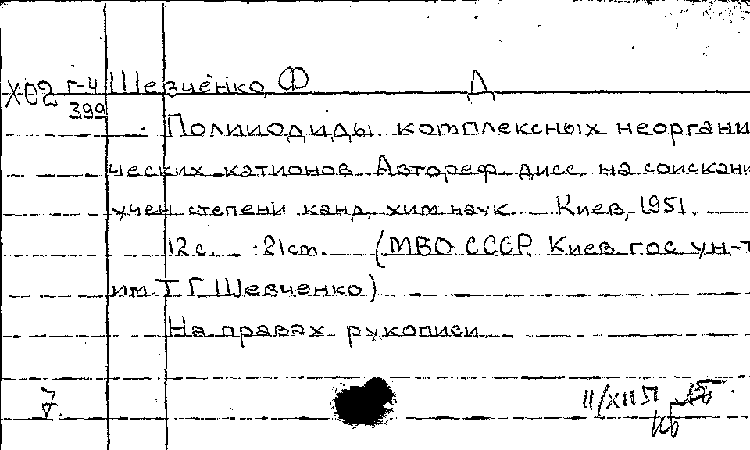 Х02 Г-4 Шевченко, Ф Д
399
Полииодиды комплексных неоргани-
ческих катионов. Автореф. дисс. на соискани
учен. степени канд. хим. наук. Киев, 1951.
12 с. 21 ст. (МВО СССР. Киев. гос. ун-т
им. Т. Г. Шевченко)
На правах рукописи
7.
11/XII 51